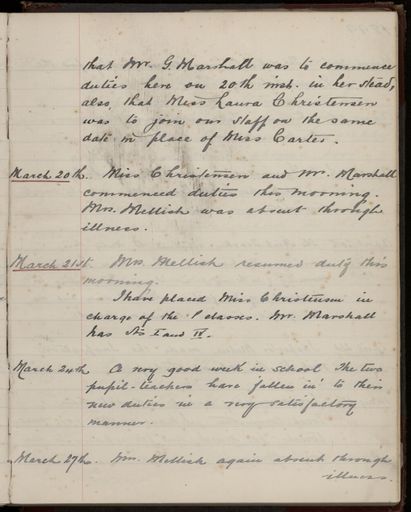 that Mr. G. Marshall was to commence
duties here on 20th inst. in her stead,
also, that Miss Laura Christensen
was to join our staff on the same
date in place of Miss Carter.
March 20th. Miss Christensen and Mr. Marshall
commenced duties this morning.
Mrs. Mellish was absent through
illness.
March 21st. Mrs. Mellish resumed duty this
morning.
I have placed Miss Christensen in
charge of the P classes. Mr. Marshall
has Sts I and IV.
March 24th. A very good week in school. The two
pupil-teachers have fallen in to their
new duties in a very satisfactory
manner.
March 27th. Mrs. Mellish again absent through
illness.